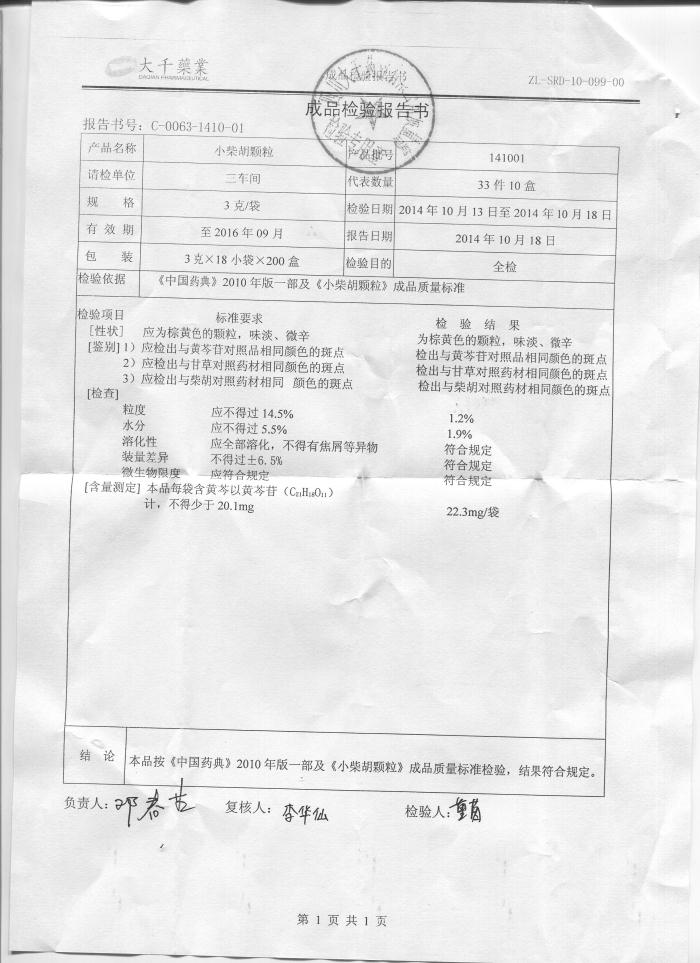 大千藥業
DAQIAN PHARMACEUTICAL
成品检验报告书
ZL-SRD-10-099-00
成品检验报告书
检验专用章
报告书号：C-0063-1410-01
产品名称 小柴胡颗粒 产品批号 141001
请检单位 三车间 代表数量 33 件 10 盒
规 格 3 克/袋 检验日期 2014 年 10 月 13 日至 2014 年 10 月 18 日
有 效 期 至 2016 年 09 月 报告日期 2014 年 10 月 18 日
包 装 3 克×18 小袋×200 盒 检验目的 全检
检验依据 《中国药典》2010 年版一部及《小柴胡颗粒》成品质量标准
检验项目 标准要求 检 验 结 果
[性状] 应为棕黄色的颗粒，味淡、微辛 为棕黄色的颗粒，味淡、微辛
[鉴别] 1）应检出与黄芩苷对照品相同颜色的斑点 检出与黄芩苷对照品相同颜色的斑点
2）应检出与甘草对照药材相同颜色的斑点 检出与甘草对照药材相同颜色的斑点
3）应检出与柴胡对照药材相同 颜色的斑点 检出与柴胡对照药材相同颜色的斑点
[检查]
粒度 应不得过 14.5% 1.2%
水分 应不得过 5.5% 1.9%
溶化性 应全部溶化，不得有焦屑等异物 符合规定
装量差异 不得过±6.5% 符合规定
微生物限度 应符合规定 符合规定
[含量测定] 本品每袋含黄芩以黄芩苷（C₂₁H₁₈O₁₁）
计，不得少于 20.1mg 22.3mg/袋
结 论 本品按《中国药典》2010 年版一部及《小柴胡颗粒》成品质量标准检验，结果符合规定。
负责人：邓春 复核人：李华仙 检验人：
第 1 页 共 1 页